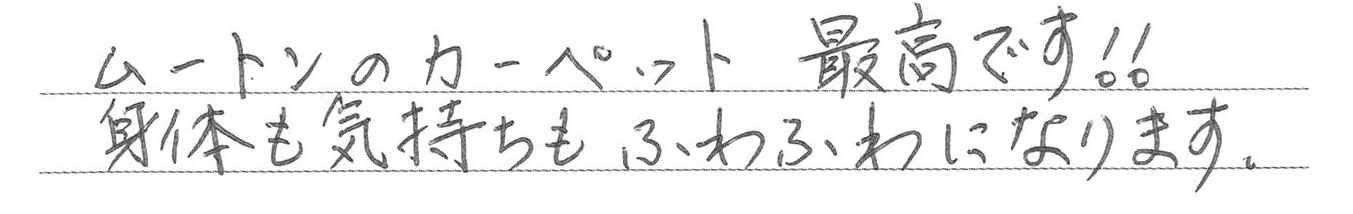 ムートンのカーペット 最高です!!
身体も気持ちもふわふわになります。